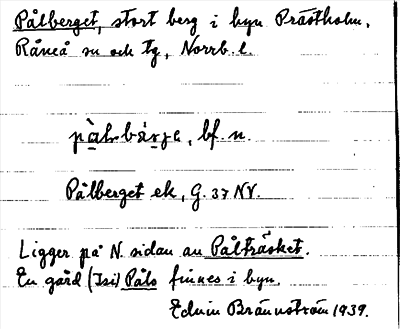 Pålberget, stort berg i byn Prästholm,
Råneå sn och tg, Norrb. l.
pàlsbæ̀rje, bf. n.
Pålberget ek, G. 37 NV.
Ligger på N. sidan av Pålträsket.
En gård (Isi) Påls finnes i byn.
Edvin Brännström 1939.